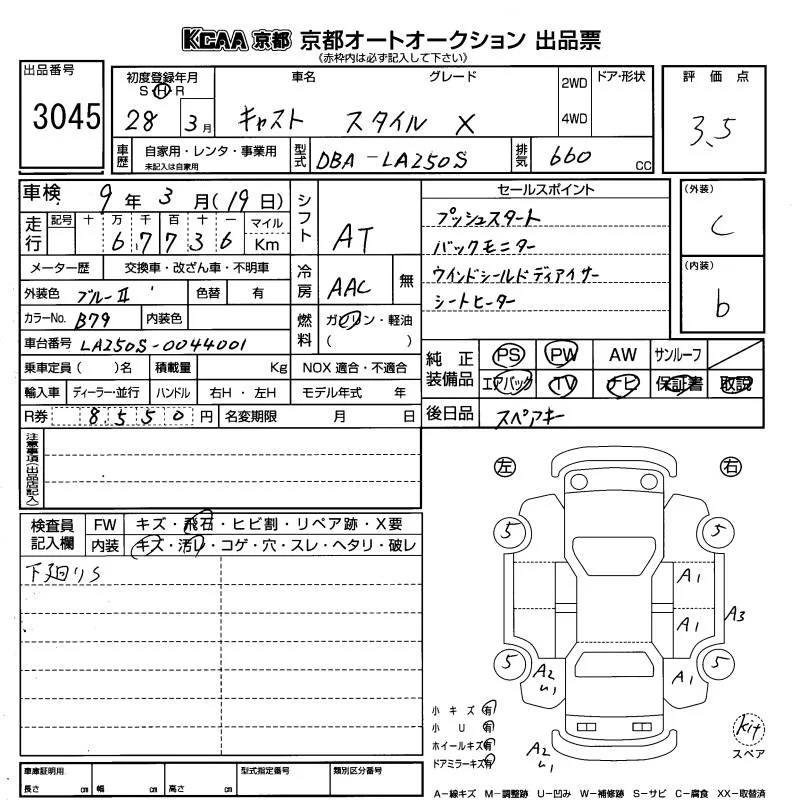 KCAA 京都 京都オートオークション 出品票
(赤枠内は必ず記入して下さい)
出品番号
3045
初度登録年月
S H R
28 3 月
車名 グレード
キャスト スタイル X
2WD
4WD
ドア・形状
評価点
3.5
車歴
自家用・レンタ・事業用
未記入は自家用
型式 DBA-LA250S
排気 660 CC
車検 9 年 3 月(19日)
走行 記号 十 万 千 百 十 一
6 7 7 3 6
マイル
Km
メーター歴 交換車・改ざん車・不明車
外装色 ブルーII 色替 有
カラーNo. B79 内装色
車台番号 LA250S-0044001
乗車定員( )名 積載量 Kg
輸入車 ディーラー・並行 ハンドル 右H・左H
R券 8,550 円 名変期限 月 日
シフト AT
冷房 AAC 無
燃料 ガソリン・軽油
( )
NOX 適合・不適合
モデル年式 年
セールスポイント
プッシュスタート
バックモニター
ウインドシールドディアイサー
シートヒーター
(外装)
C
(内装)
b
純正装備品 PS PW AW サンルーフ
エアバッグ TV ナビ 保証書 取説
後日品 スペアキー
注意事項(出品店記入)
検査員記入欄
FW キズ・飛石・ヒビ割・リペア跡・X要
内装 キズ・汚レ・コゲ・穴・スレ・ヘタリ・破レ
下廻りS
左 右
5 5
A1
A1 A3
5 A2 U1 A1 5
小キズ 有
小U 有
ホイールキズ 有
ドアミラーキズ 有
A2 U1
kit
スペア
車庫証明用
長さ cm 幅 cm 高さ cm
型式指定番号
類別区分番号
A-線キズ M-調整跡 U-凹み W-補修跡 S-サビ C-腐食 XX-取替済